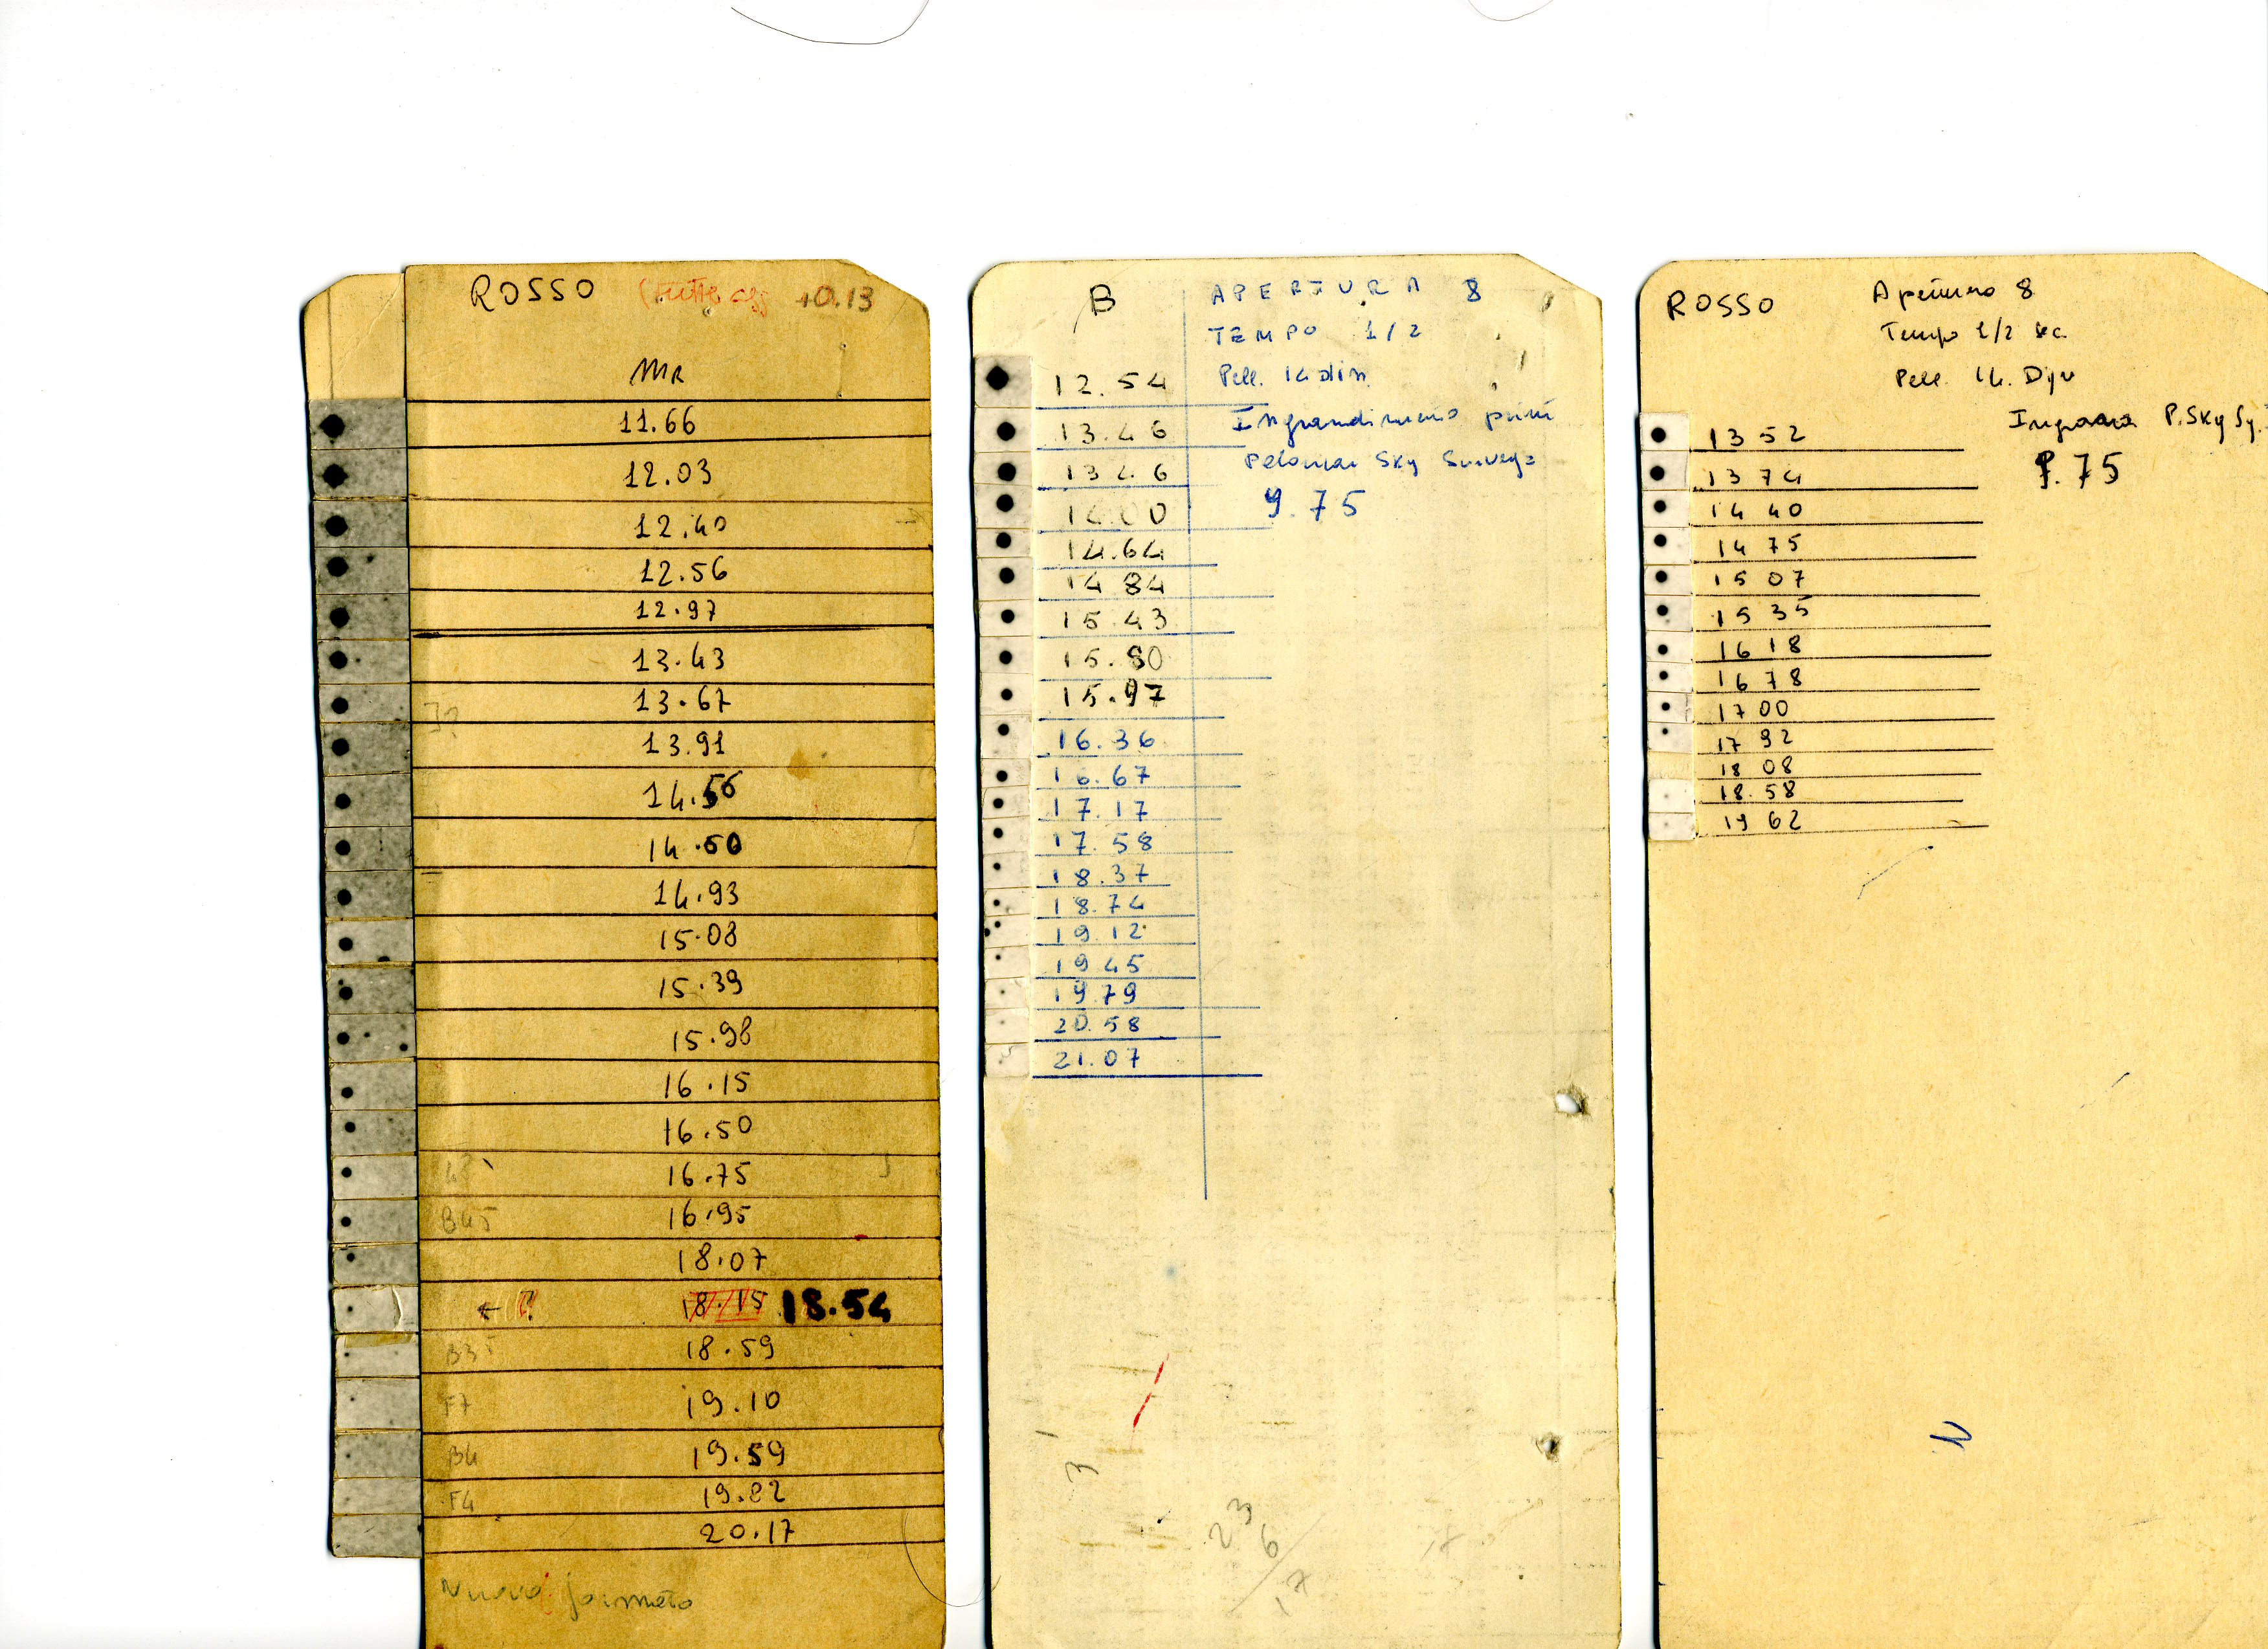 ROSSO +0.13
MR
11.66
12.03
12.40
12.56
12.97
13.43
13.67
13.91
14.56
14.50
14.93
15.08
15.39
15.98
16.15
16.50
16.75
B45 16.95
18.07
← ? 18.15 18.54
B35 18.59
F7 19.10
B4 19.59
F4 19.82
20.17
Nuovo formato
B APERTURA 8
TEMPO 1/2
12.54 Pell.
13.46 Ingrandimento print
13.46 Palomar Sky Survey
14.00 9.75
14.64
14 84
15.43
15.80
15.97
16.36
16.67
17.17
17.58
18.37
18.74
19.12
19 45
19.79
20.58
21.07
7
236/17
ROSSO Apertura 8
Tempo 1/2 sec.
Pell.
13 52 P. Sky Sy.
13 74 9.75
14 40
14 75
15 07
15 35
16 18
16 78
17 00
17 92
18 08
18.58
19 62